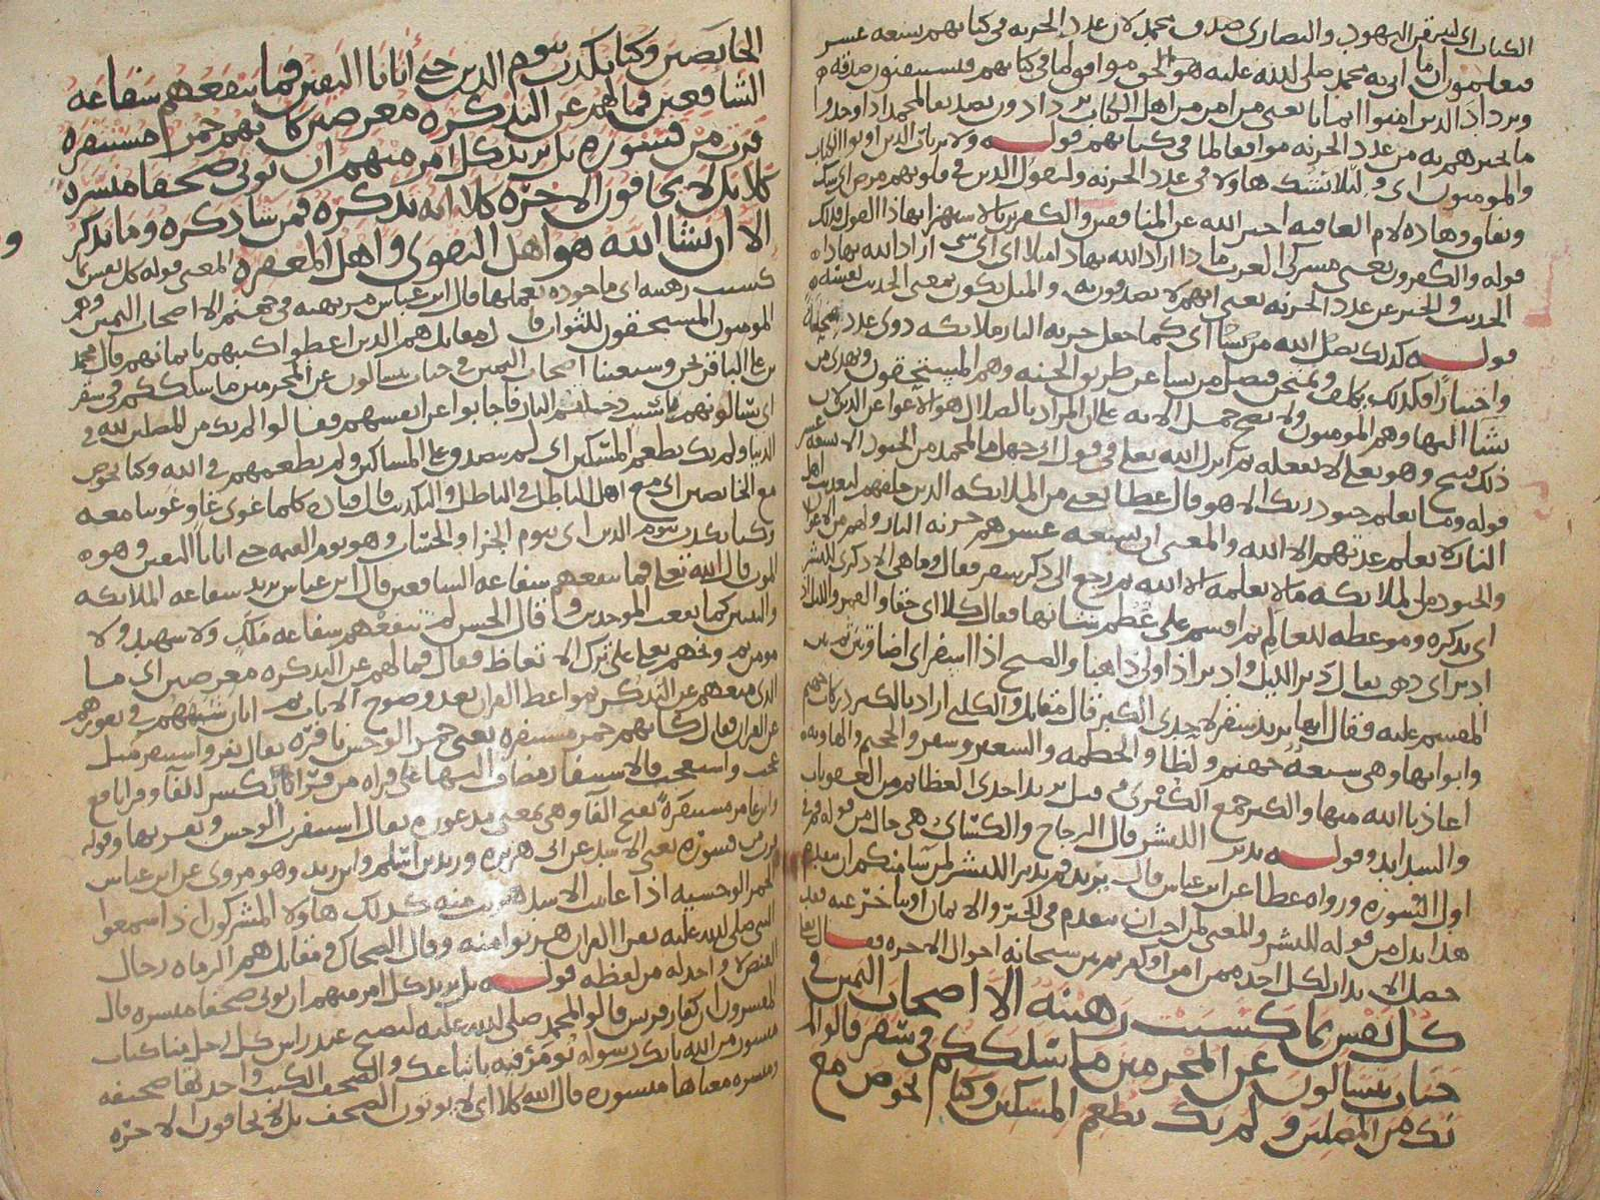 الكتاب اى ليتيقن اليهود والنصارى صدق محمد لان عدد الخزنه فى كتابهم تسعه عشر
فيعلمون ان ما اتى به محمد صلى الله عليه هو الحق موافق لما فى كتابهم فيستيقنون صدقه
ويزداد الذين امنوا ايمانا يعنى من امن من اهل الكتاب يزدادون تصديقا لمحمد اذا وجدوا
ما يخبرهم به من عدد الخزنه موافقا لما فى كتابهم قوله ولا يرتاب الذين اوتوا الكتاب
والمومنون اى ولئلا يشك هاولا فى عدد الخزنه وليقول الذين فى قلوبهم مرض اى شك
ونفاق وهاذه لام العاقبه اخبر الله عن المنافقين والكفرين بالاستهزا بهاذا القول فذلك
قوله والكفرون يعنى مشركى العرب ماذا اراد الله بهاذا مثلا اى اى شى اراد الله بهاذا
الحديث والخبر عن عدد الخزنه يعنى انهم لا يصدقون به والمثل يكون بمعنى الحديث نفسه
قوله كذلك يضل الله من يشا اى كما جعل خزنه النار ملايكه ذوى عدد
واختبارا فكذلك يكلف ويمتحن فيضل من يشا عن طريق الجنه وهم المستحقون ويهدى من
يشا اليها وهم المومنون ولا يصح حمل الايه على ان المراد بالضلال هو الاغوا عن الدين لان
ذلك قبيح وهو تعلى لا يفعله ثم انزل الله تعلى فى قول ابى جهل ما لمحمد من الجنود الا تسعه عشر
قوله وما يعلم جنود ربك الا هو قال عطا يعنى من الملايكه الذين خلقهم لتعذيب اهل
النار لا يعلم عدتهم الا الله والمعنى ان تسعه عشر هم خزنه النار ولهم من الاعوان
والجنود من الملايكه ما لا يعلمه الا الله ثم رجع الى ذكر سقر فقال وما هى الا ذكرى للبشر
اى تذكره وموعظه للعالم ثم اقسم على عظم شانها فقال كلا اى حقا والقمر والليل اذا
ادبر اى ذهب يقال دبر الليل وادبر اذا ولى ذاهبا والصبح اذا اسفر اى اضا وتبين
المقسم عليه فقال انها يريد سقر لاحدى الكبر قال مقاتل والكلبى اراد بالكبر دركات جهنم
وابوابها وهى سبعه جهنم ولظا والحطمه والسعير وسقر والجحيم والهاويه
اعاذنا الله منها والكبر جمع الكبرى وقيل يريد احدى العظايم من العقوبات
والشدايد وقوله نذيرا للبشر قال الزجاج والكسائى هى حال من قوله قم فى
اول السوره ورواه عطا عن ابن عباس قال يريد قم نذيرا للبشر لمن شا منكم ان يتقدم
هذا بدل من قوله للبشر والمعنى لمن احب ان يتقدم فى الخير والايمان او يتاخر عنه فقد
حصل الانذار لكل احد ممن امن او كفر ثم بين سبحانه احوال الاخره فقال تعلى
كل نفس بما كسبت رهينه الا اصحاب اليمين فى
جنات يتسالون عن المجرمين ما سلككم فى سقر قالوا لم
نك من المصلين ولم نك نطعم المسكين وكنا نخوض مع
الخايضين وكنا نكذب بيوم الدين حتى اتانا اليقين فما تنفعهم شفاعه
الشافعين فما لهم عن التذكره معرضين كانهم حمر مستنفره
فرت من قسوره بل يريد كل امرى منهم ان يوتى صحفا منشره
كلا بل لا يخافون الاخره كلا انه تذكره فمن شا ذكره وما يذكر
الا ان يشا الله هو اهل التقوى واهل المغفره المعنى قوله كل نفس بما
كسبت رهينه اى ماخوذه بعملها قال ابن عباس مرتهنه فى جهنم الا اصحاب اليمين وهم
المومنون المستحقون للثواب قال مقاتل هم الذين اعطوا كتبهم بايمانهم قال محمد
بن على الباقر نحن وشيعتنا اصحاب اليمين فى جنات يتسالون عن المجرمين ما سلككم فى سقر
اى يسالونهم ما سبب دخولهم النار فاجابوا عن انفسهم فقالوا لم نك من المصلين لله فى
الدنيا ولم نك نطعم المسكين اى لم نصدق على المساكين ولم نطعمهم فى الله وكنا نخوض
مع الخايضين اى مع اهل الباطل فى الباطل والتكذيب قال قتاده كلما غوى غاو غوينا معه
وكنا نكذب بيوم الدين اى بيوم الجزا والحساب وهو يوم القيمه حتى اتانا اليقين وهو
الموت قال الله تعلى فما تنفعهم شفاعه الشافعين قال ابن عباس يريد شفاعه الملايكه
والنبيين كما نفعت الموحدين وقال الحسن لم تنفعهم شفاعه ملك ولا شهيد ولا
مومن ثم وبخهم تعلى على ترك الاتعاظ فقال فما لهم عن التذكره معرضين اى ما
الذى منعهم عن التذكر بمواعظ القران بعد وضوح الايات ثم ابان شبههم فى نفورهم
عن القران فقال كانهم حمر مستنفره يعنى حمر الوحش نافره يقال نفر واستنفر مثل
عجب واستعجب فالاستنفار مضاف اليها على قراه من قرا بكسر الفا وقرا نافع
وابن عامر مستنفره بفتح الفا وهى بمعنى مذعوره يقال استنفرت الوحش ونفرتها وقوله
فرت من قسوره يعنى الاسد عن ابى هريره وزيد بن اسلم وابن زيد وهو مروى عن ابن عباس
الحمر الوحشيه اذا عاينت الاسد هربت منه كذلك هاولا المشركون اذا سمعوا
النبى صلى الله عليه يقرا القران هربوا منه وقال الضحاك ومقاتل هم الرماه رجال
القنص لا واحد له من لفظه قوله بل يريد كل امرى منهم ان يوتى صحفا منشره قال
المفسرون ان كفار قريش قالوا لمحمد صلى الله عليه ليصبح عند راس كل رجل منا كتاب
منشور من الله بانك رسوله نومر فيه باتباعك والصحف الكتب واحدتها صحيفه
ومنشره معناها منشوره قال الله كلا اى لا يوتون الصحف بل لا يخافون الاخره